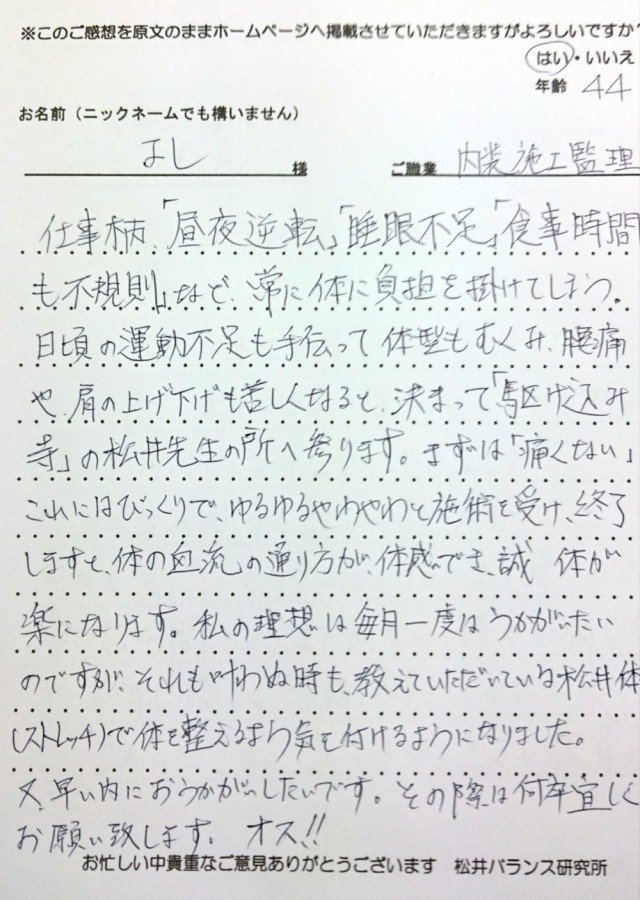 ※このご感想を原文のままホームページへ掲載させていただきますがよろしいですか?
はい・いいえ
年齢 44
お名前（ニックネームでも構いません）
よし 様 ご職業 内装施工監理
仕事柄、「昼夜逆転」「睡眠不足」「食事時間
も不規則」など、常に体に負担を掛けてしまう。
日頃の運動不足も手伝って体型もむくみ、腰痛
や、肩の上げ下げも苦しくなると、決まって「駆け込み
寺」の松井先生の所へ参ります。まずは「痛くない」
これにはびっくりで、ゆるゆるやわやわと施術を受け、終了
しますと、体の血流の通り方が、体感でき、誠 体が
楽になります。私の理想は毎月一度はうかがいたい
のですが、それも叶わぬ時も、教えていただいている松井体
(ストレッチ)で体を整えるよう気を付けるようになりました。
又、早い内におうかがいしたいです。その際は何卒宜しく
お願い致します。 オス!!
お忙しい中貴重なご意見ありがとうございます 松井バランス研究所